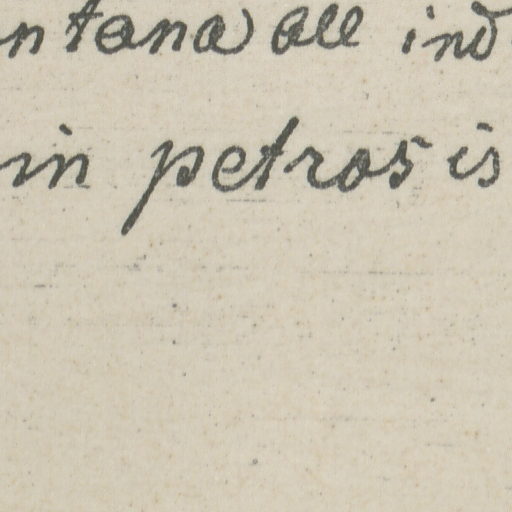 ntana all ind
in petrosis